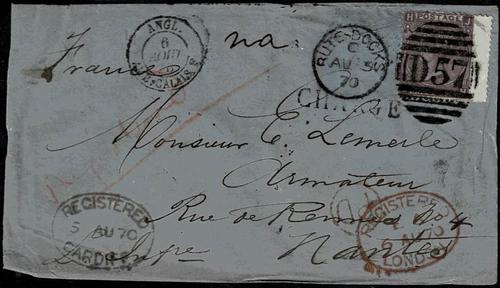 ANGL.
6
AOUT
CALAIS
BUTE-DOCKS
C
AU 5
70
H POSTAGE J
D57
France
via
CHARGE
Monsieur E. Lemerle
Armateur
Rue de Rennes No 4
Nantes
REGISTERED
5 AU 70
CARDIFF
REGISTERED
6 AU 70
LONDON